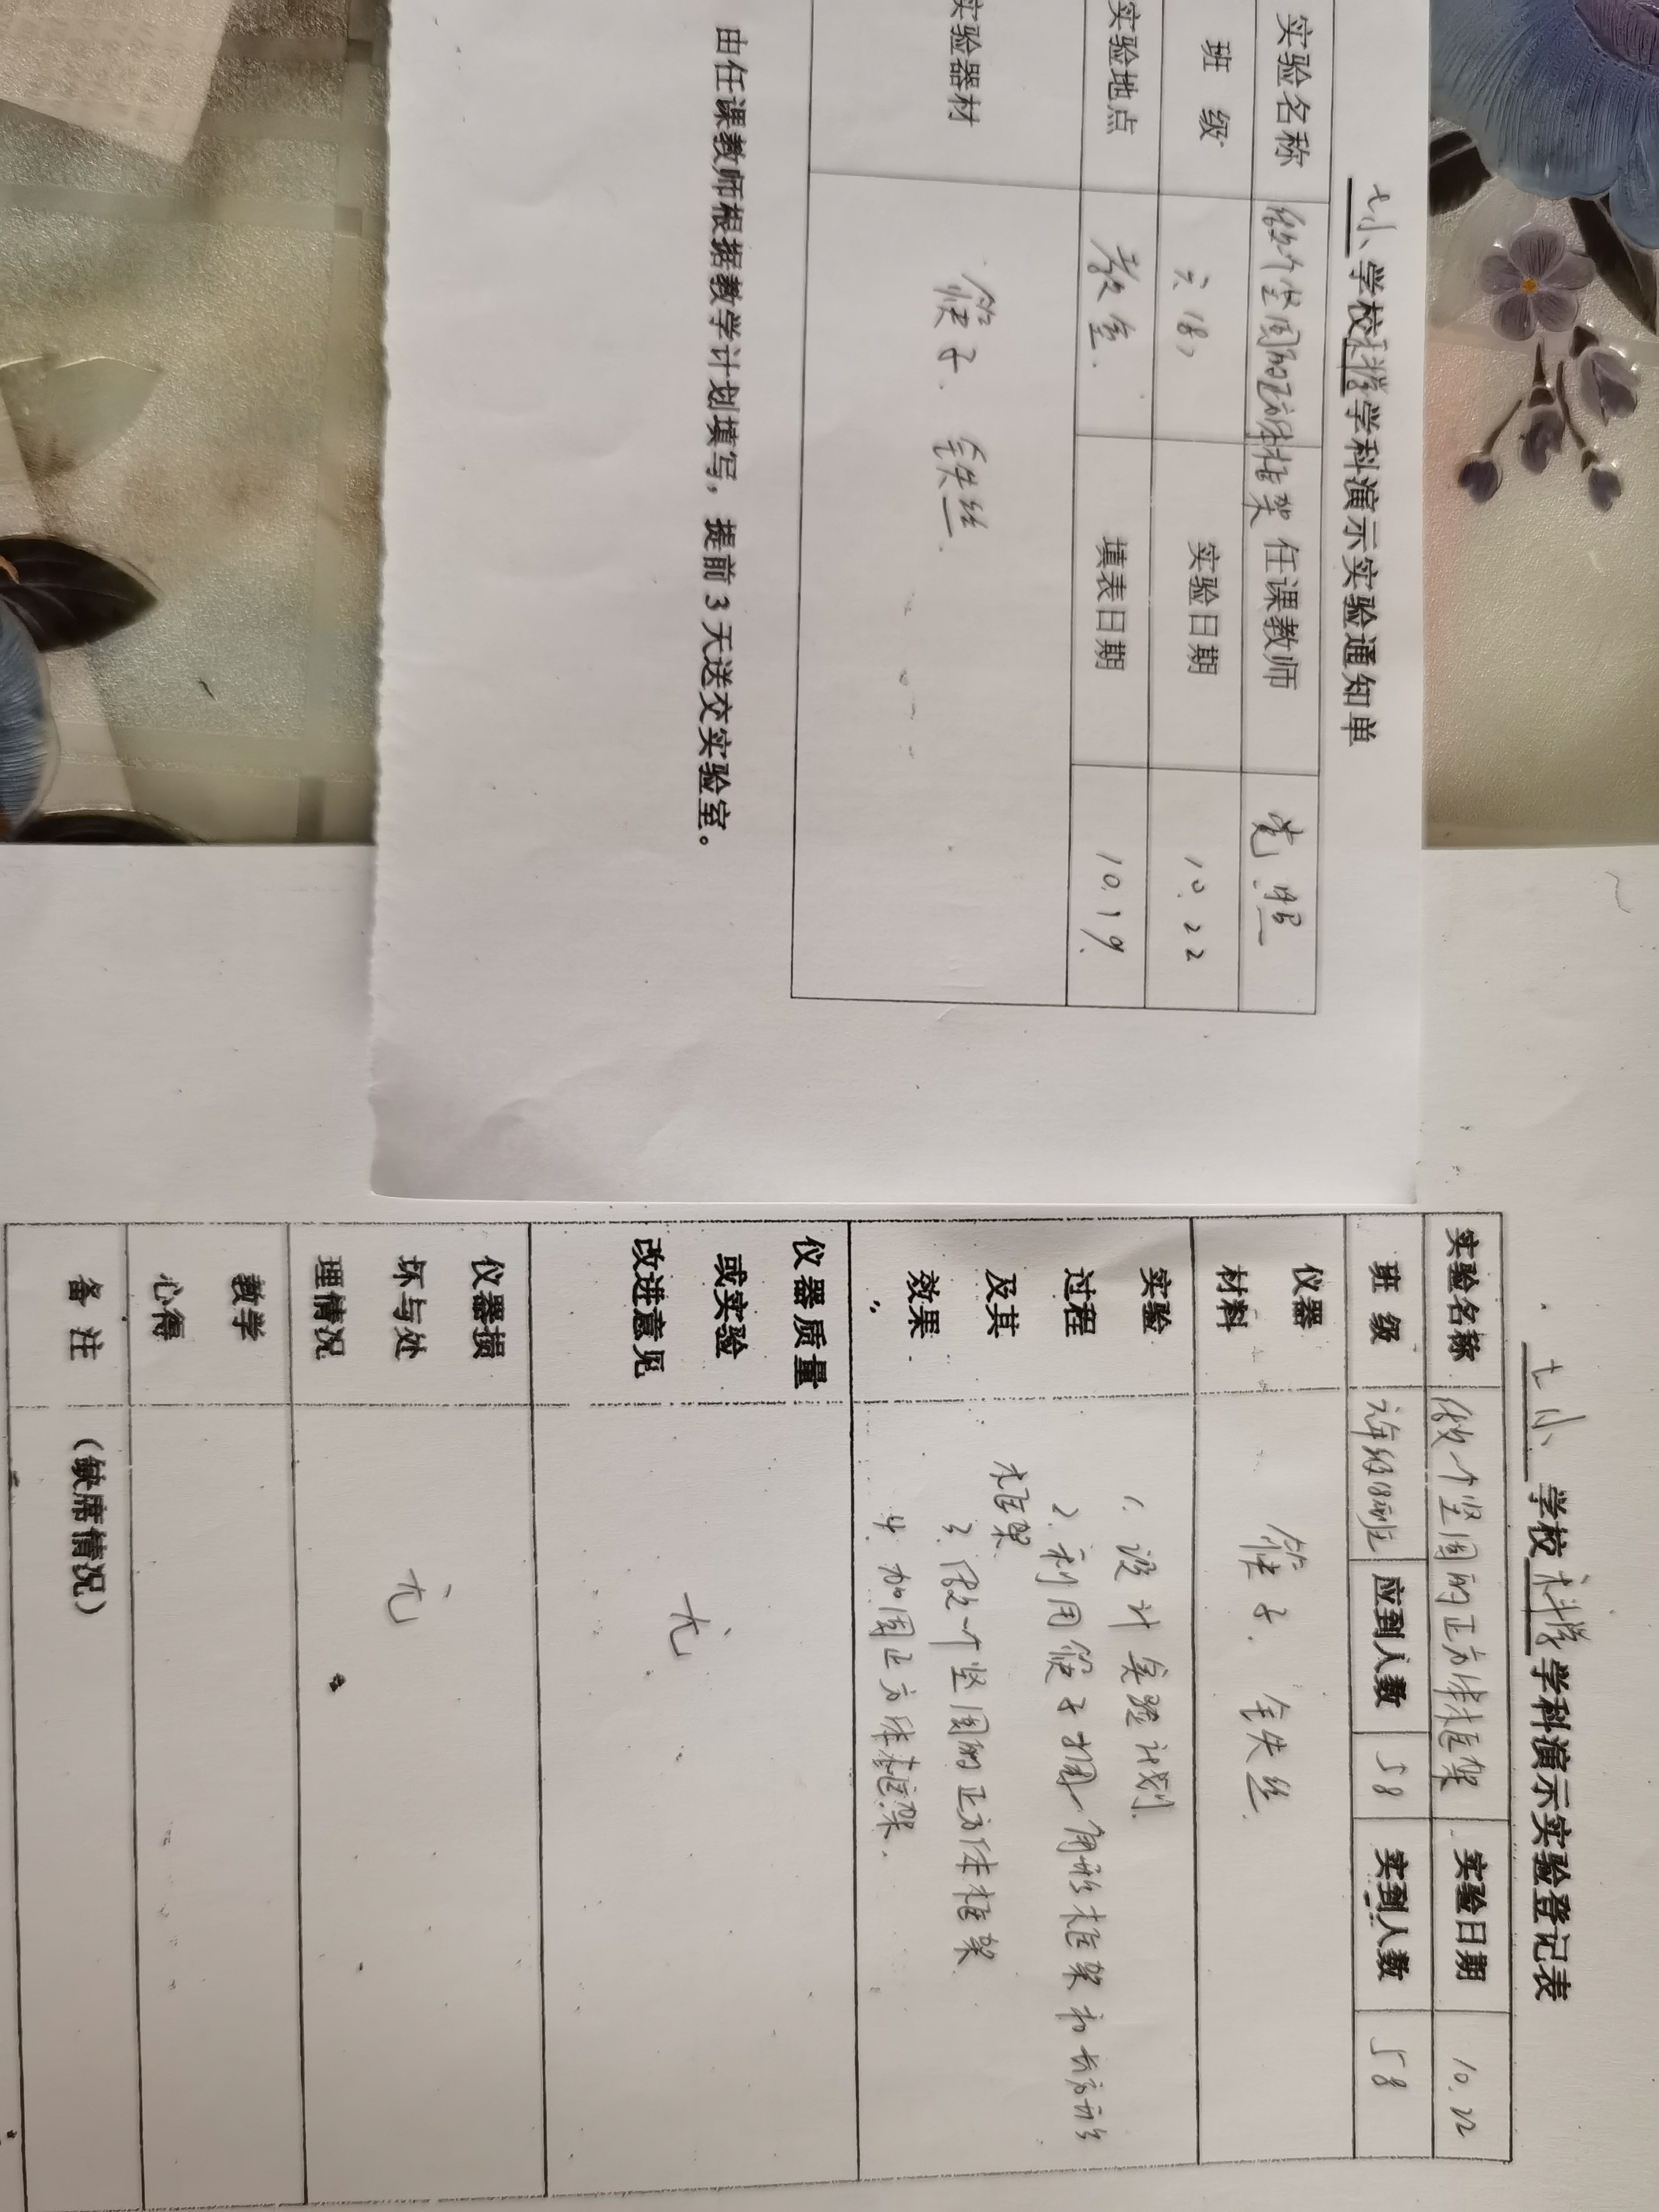 七小 学校 科学 学科演示实验通知单
实验名称 做个坚固的正方体框架 任课教师
班 级 六.(8) 实验日期 10.22
实验地点 教室. 填表日期 10.19.
实验器材 筷子. 铁丝.
由任课教师根据教学计划填写，提前3天送交实验室。
七小 学校 科学 学科演示实验登记表
实验名称 做个坚固的正方体框架 实验日期 10.22
班 级 六年级(8)班 应到人数 58 实到人数 58
仪器
材料
筷子. 铁丝.
实验
过程
及其
效果
1. 设计实验计划.
2. 利用筷子捆 角形框架和长方形
框架
3. 做一个坚固的正方体框架
4. 加固正方体框架.
仪器质量
或实验
改进意见
无
仪器损
坏与处
理情况
无
教学
心得
备 注 （缺席情况）